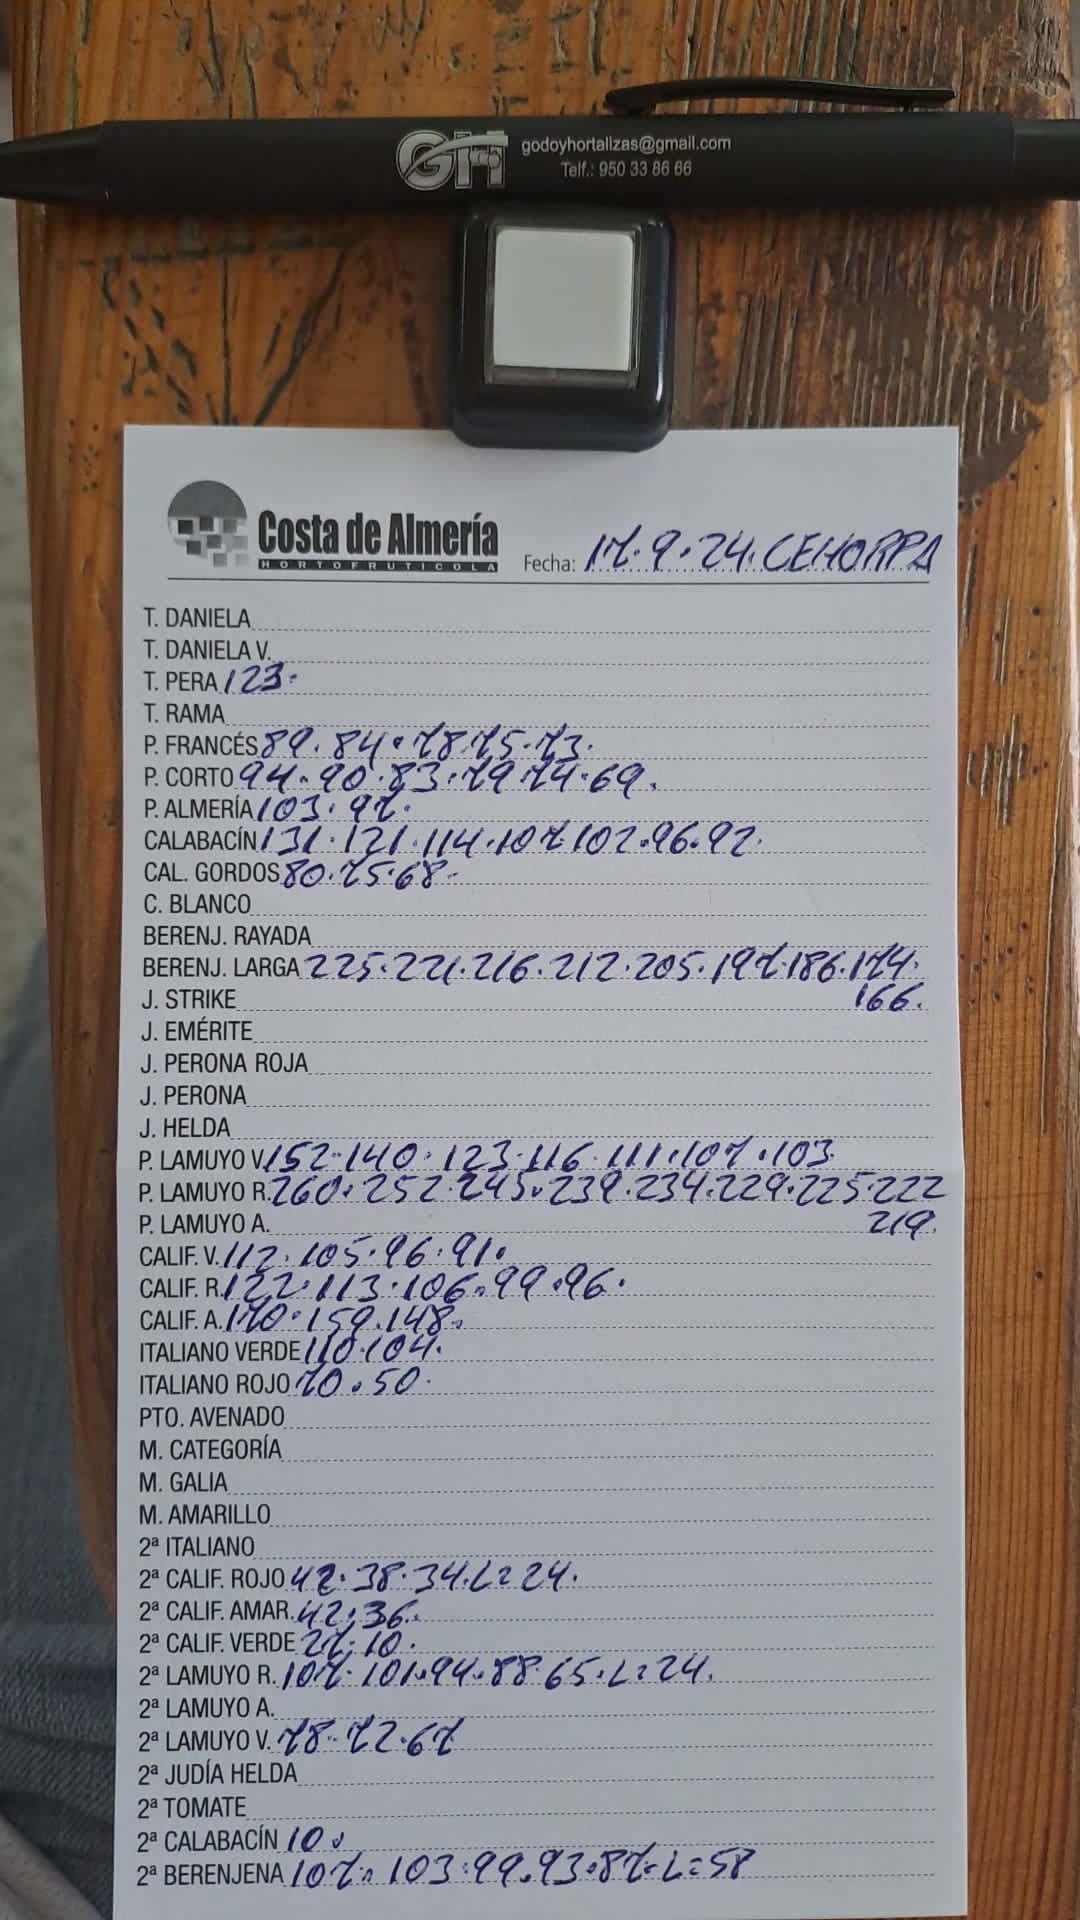 GH godoyhortalizas@gmail.com
Telf.: 950 33 86 66
Costa de Almería
HORTOFRUTICOLA
Fecha: 17.9.24. CEHORPA
T. DANIELA
T. DANIELA V.
T. PERA 123.
T. RAMA
P. FRANCÉS 89.84.78.75.73.
P. CORTO 94.90.83.79.74.69.
P. ALMERÍA 103.97.
CALABACÍN 131.121.114.107.102.96.92.
CAL. GORDOS 80.75.68.
C. BLANCO
BERENJ. RAYADA
BERENJ. LARGA 225.221.216.212.205.197.186.174.
J. STRIKE 166.
J. EMÉRITE
J. PERONA ROJA
J. PERONA
J. HELDA
P. LAMUYO V. 152.140.123.116.111.107.103.
P. LAMUYO R. 260.252.245.239.234.229.225.222
P. LAMUYO A. 219.
CALIF. V. 112.105.96.91.
CALIF. R. 122.113.106.99.96.
CALIF. A. 170.159.148.
ITALIANO VERDE 110.104.
ITALIANO ROJO 70.50.
PTO. AVENADO
M. CATEGORÍA
M. GALIA
M. AMARILLO
2ª ITALIANO
2ª CALIF. ROJO 42.38.34.L=24.
2ª CALIF. AMAR. 42.36.
2ª CALIF. VERDE 27.10.
2ª LAMUYO R. 107.101.94.88.65.L=24.
2ª LAMUYO A.
2ª LAMUYO V. 78.72.67
2ª JUDÍA HELDA
2ª TOMATE
2ª CALABACÍN 10.
2ª BERENJENA 107.103.99.93.87.L=58